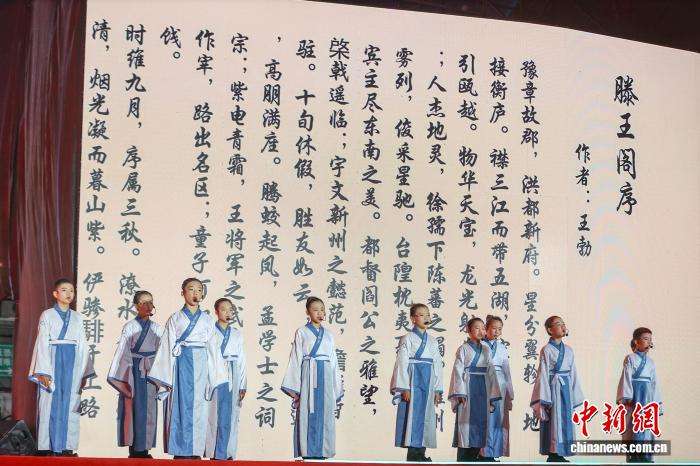 滕王阁序
作者：王勃
豫章故郡，洪都新府。星分翼轸，地
接衡庐。襟三江而带五湖，
引瓯越。物华天宝，龙光射
；人杰地灵，徐孺下陈蕃之榻。州
雾列，俊采星驰。台隍枕夷
宾主尽东南之美。都督阎公之雅望，
棨戟遥临；宇文新州之懿范，
驻。十旬休假，胜友如云
，高朋满座。腾蛟起凤，孟学士之词
宗；紫电青霜，王将军之武
作宰，路出名区；童子
饯。
时维九月，序属三秋。潦水
清，烟光凝而暮山紫。俨骖騑于上路
中新网
chinanews.com